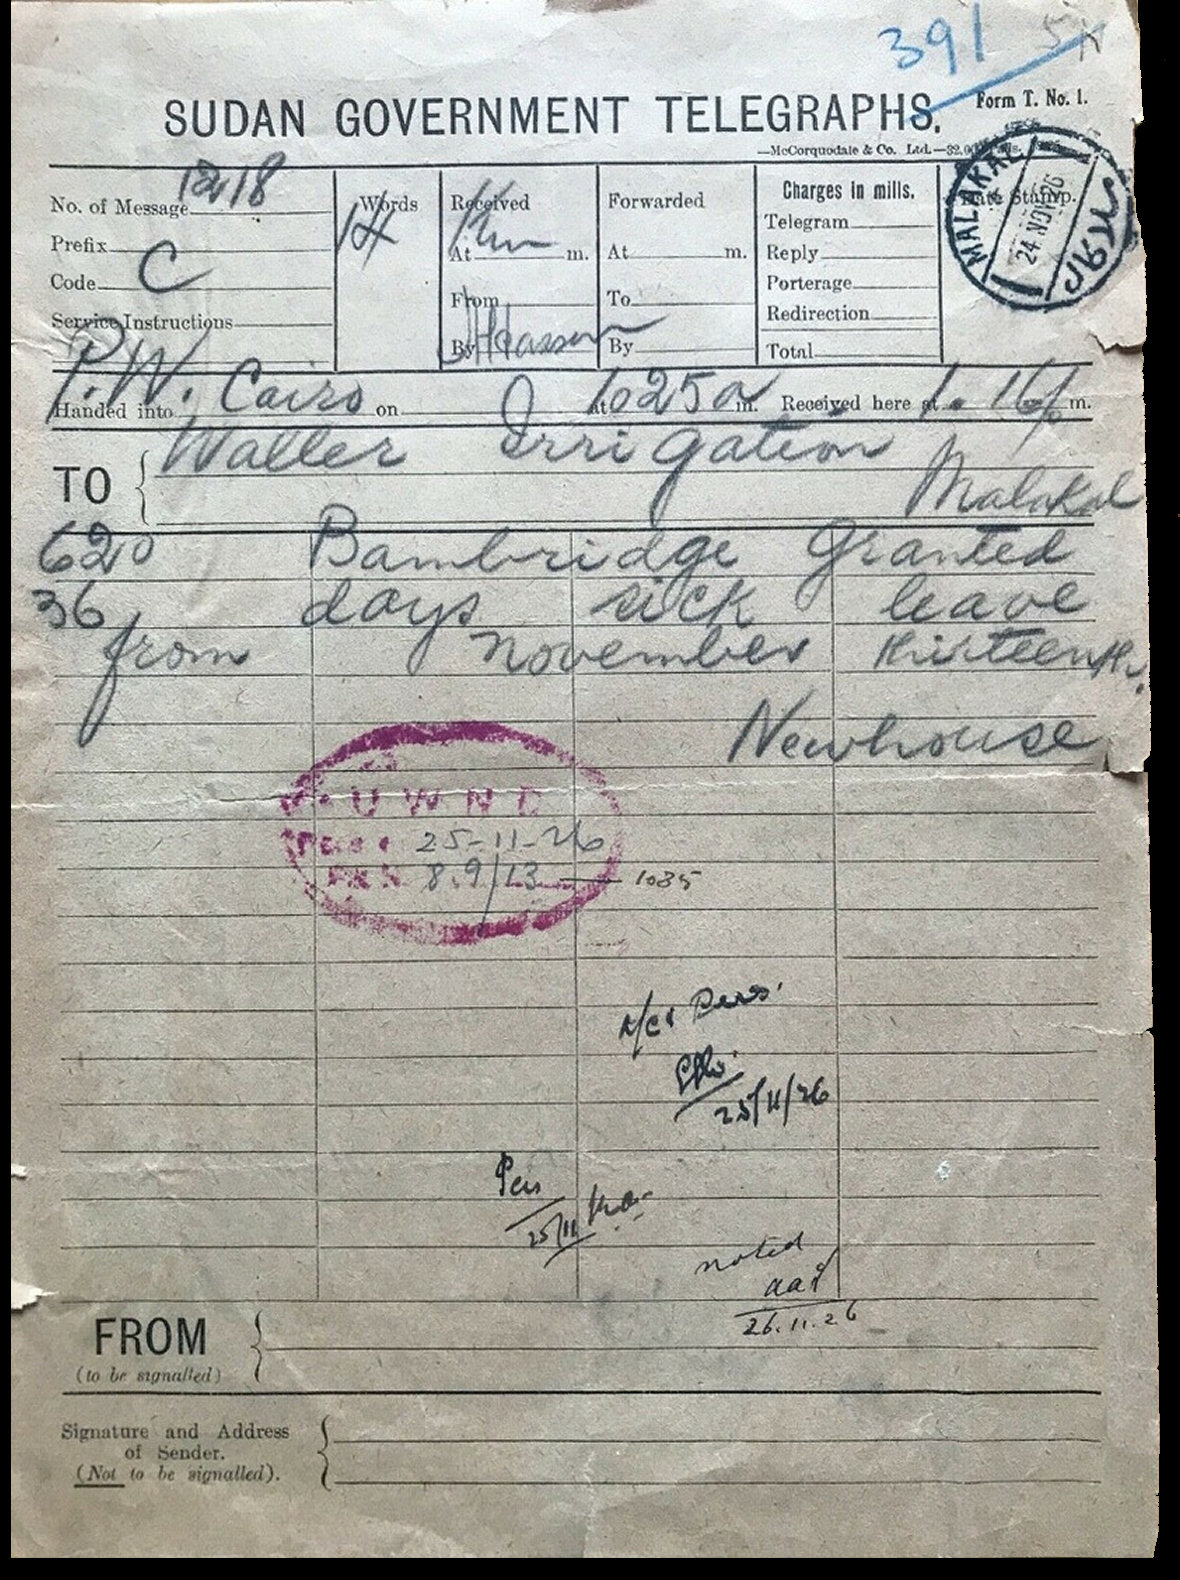 391
SUDAN GOVERNMENT TELEGRAPHS.
Form T. No. 1.
—McCorquodale & Co. Ltd.—
No. of Message 1218
Prefix
Code C
Service Instructions
Words 14
Received
At m.
From
By Hassan
Forwarded
At m.
To
By
Charges in mills.
Telegram
Reply
Porterage
Redirection
Total
Date Stamp.
MALAKAL
24 NOV 26
P.W. Cairo
Handed into on at 1025 a m. Received here at 1.16 p m.
TO
Waller Irrigation
Malakal
620 Bambridge granted
36 days sick leave
from november thirteenth.
Newhouse
U W N D
25-11-26
8.9/13 — 1035
Pers.
25/11/26
25/11
noted
26.11.26
FROM
(to be signalled)
Signature and Address
of Sender.
(Not to be signalled).